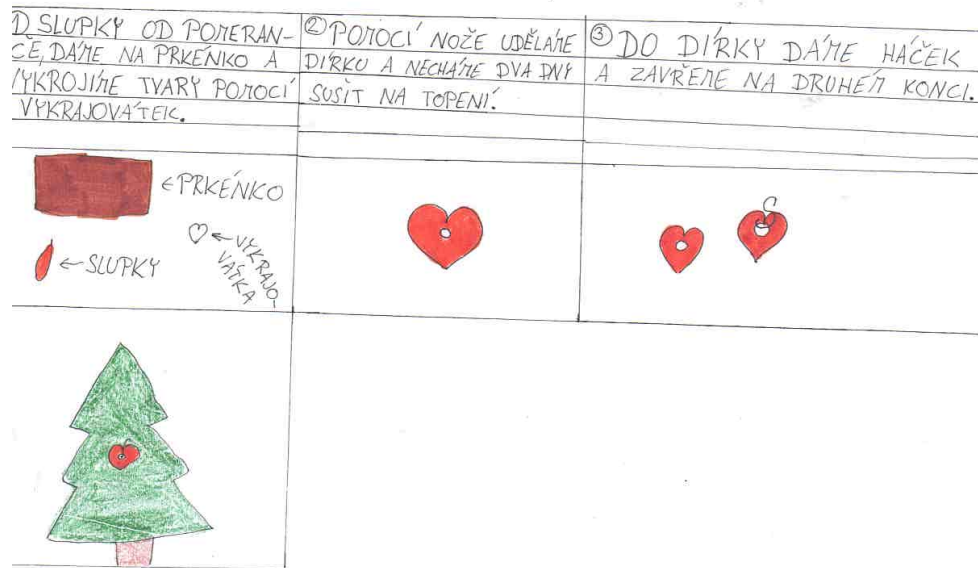 ① SLUPKY OD POMERAN-
CE, DÁME NA PRKÉNKO A
VYKROJÍME TVARY POMOCÍ
VYKRAJOVÁTEK.
② POMOCÍ NOŽE UDĚLÁME
DÍRKU A NECHÁME DVA DNY
SUŠIT NA TOPENÍ.
③ DO DÍRKY DÁME HÁČEK
A ZAVŘEME NA DRUHÉM KONCI.
←PRKÉNKO
←SLUPKY
←VYKRAJO-
VÁTKA